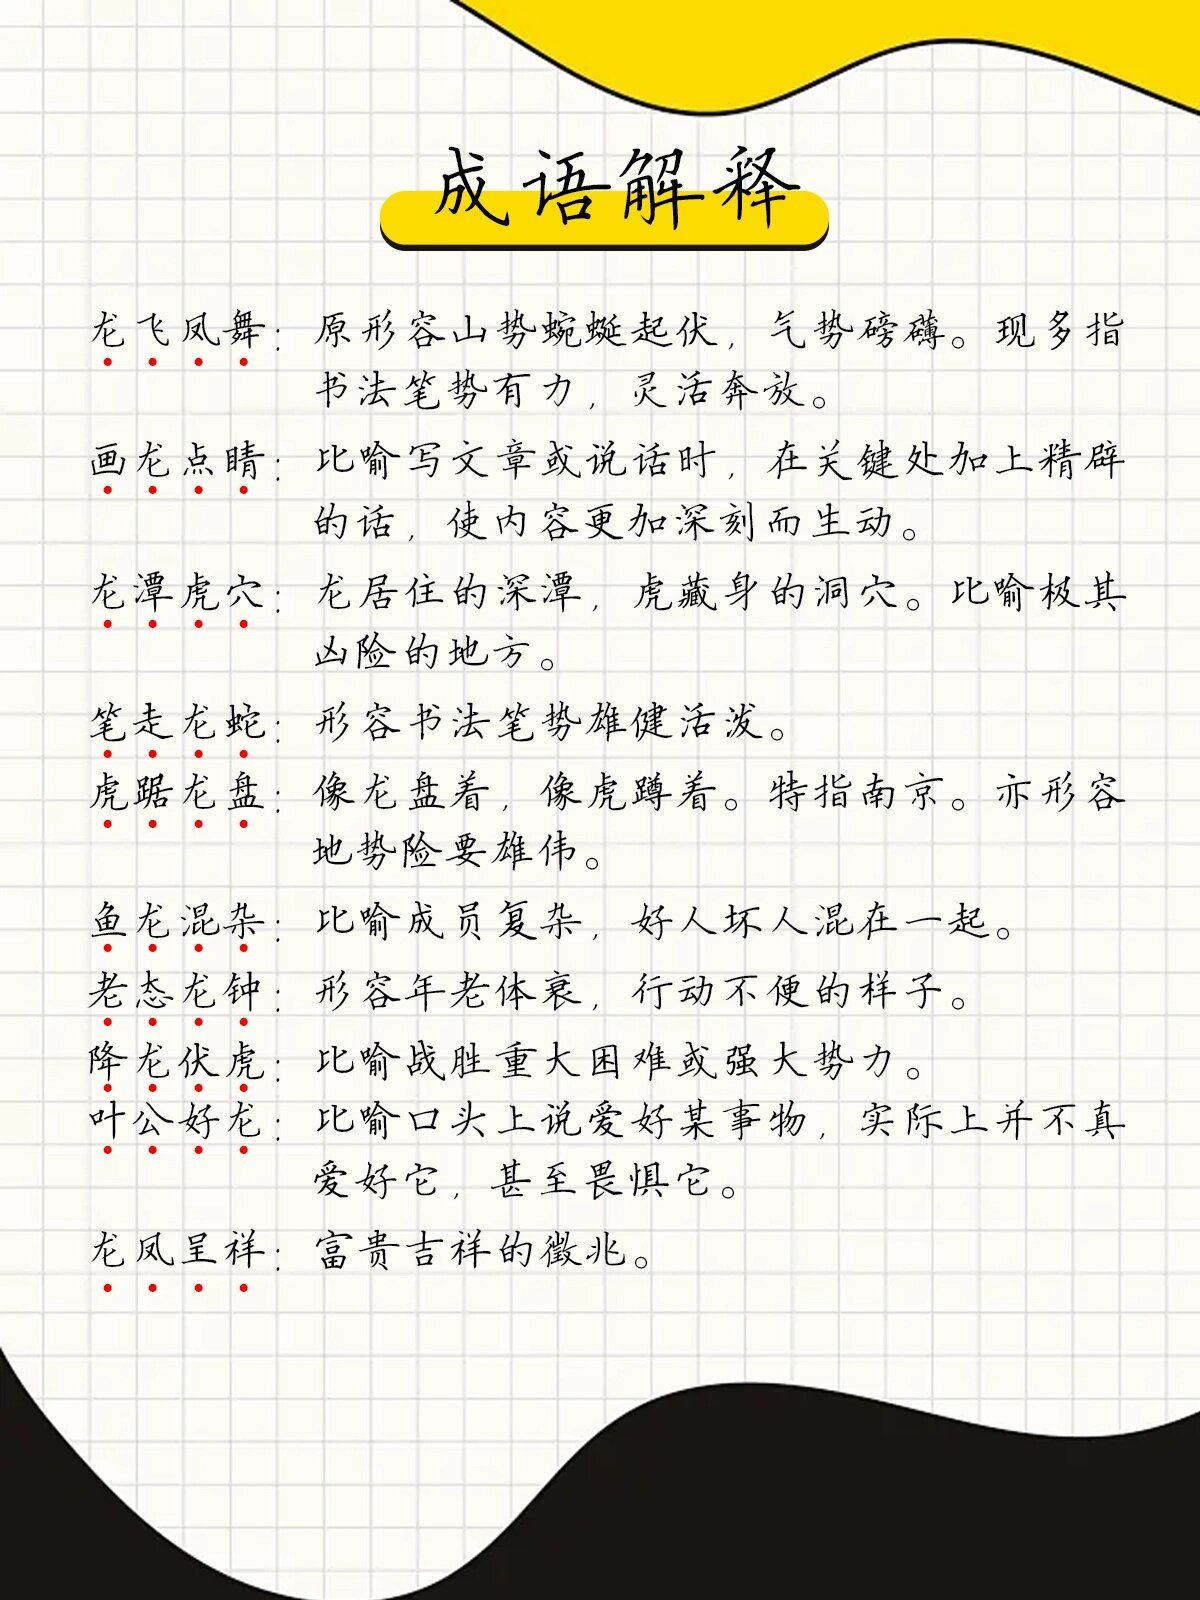 成语解释
龙飞凤舞：原形容山势蜿蜒起伏，气势磅礴。现多指
书法笔势有力，灵活奔放。
画龙点睛：比喻写文章或说话时，在关键处加上精辟
的话，使内容更加深刻而生动。
龙潭虎穴：龙居住的深潭，虎藏身的洞穴。比喻极其
凶险的地方。
笔走龙蛇：形容书法笔势雄健活泼。
虎踞龙盘：像龙盘着，像虎蹲着。特指南京。亦形容
地势险要雄伟。
鱼龙混杂：比喻成员复杂，好人坏人混在一起。
老态龙钟：形容年老体衰，行动不便的样子。
降龙伏虎：比喻战胜重大困难或强大势力。
叶公好龙：比喻口头上说爱好某事物，实际上并不真
爱好它，甚至畏惧它。
龙凤呈祥：富贵吉祥的徵兆。